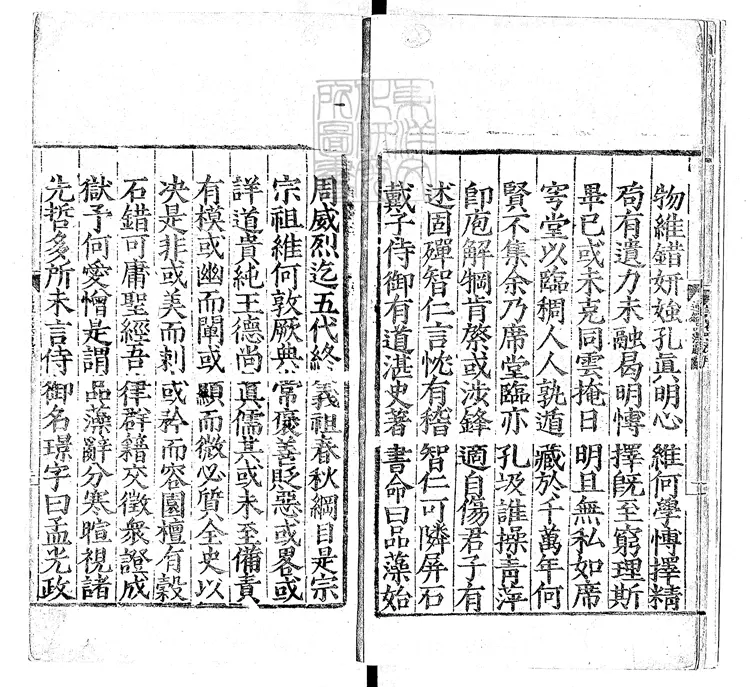 物維錯妍媸孔眞明心維何學愽擇精
苟有遺力未融曷明愽擇旣至窮理斯
畢已或未克同雲掩日明且無私如席
穹堂以臨稠人人孰遁藏於千萬年何
賢不集余乃席堂臨亦孔圾誰操青萍
卽庖解犅肯綮或汝鋒適自傷君子有
述固殫智仁言恍有稽智仁可隣屏石
戴子侍御有道湛史著書命曰品藻始
周威烈迄五代終義祖春秋綱目是宗
宗祖維何敦厥典常褒善貶惡或畧或
詳道貴純王德尚眞儒其或未至備責
有模或幽而闡或顯而微必質全史以
决是非或美而刺或矜而容園檀有穀
石錯可庸聖經吾律群籍交徵衆證成
獄予何愛憎是謂品藻辭分寒暄視諸
先哲多所未言侍御名璟字曰孟光政